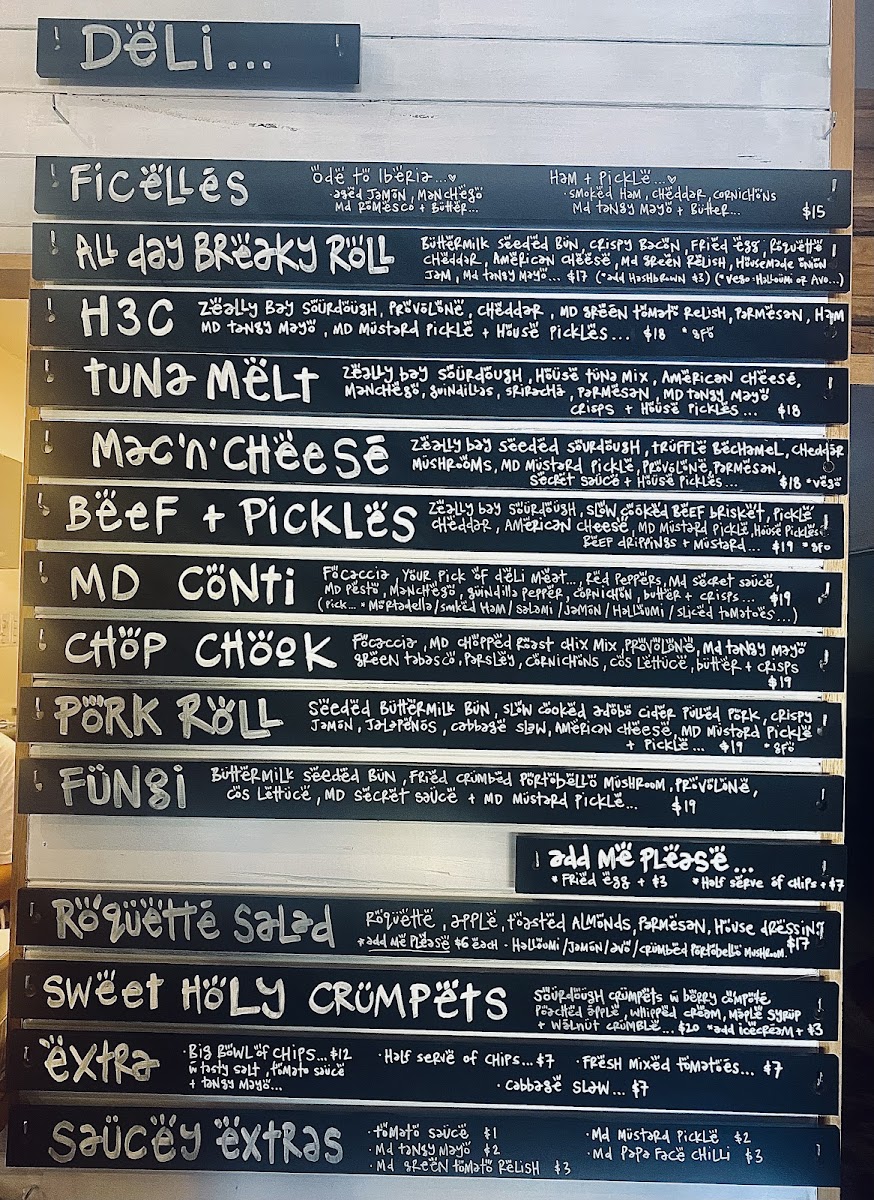 Deli...
Ficelles
Ode to Iberia...♥
· aged Jamon, Manchego
Md Romesco + Butter...
Ham + Pickle...♥
· Smoked Ham, Cheddar, Cornichons
Md Tangy Mayo + Butter...
$15
All Day Breaky Roll
Buttermilk Seeded Bun, Crispy Bacon, Fried Egg, Roquette
Cheddar, American Cheese, Md Green Relish, Housemade Onion
Jam, Md Tangy Mayo... $17 (*add Hashbrown $3) (*Vego=Halloumi or Avo...)
H3C
Zeally Bay Sourdough, Provolone, Cheddar, MD Green Tomato Relish, Parmesan, Ham
MD Tangy Mayo, MD Mustard Pickle + House Pickles... $18 *GFO
Tuna Melt
Zeally Bay Sourdough, House Tuna Mix, American Cheese,
Manchego, Guindillas, Sriracha, Parmesan, MD Tangy Mayo
Crisps + House Pickles... $18
Mac'n'Cheese
Zeally Bay Seeded Sourdough, Truffle Bechamel, Cheddar
Mushrooms, MD Mustard Pickle, Provolone, Parmesan,
Secret Sauce + House Pickles... $18 *Vego
Beef + Pickles
Zeally Bay Sourdough, Slow Cooked Beef Brisket, Pickle
Cheddar, American Cheese, MD Mustard Pickle, House Pickles
Beef Drippings + Mustard... $19 *GFO
MD Conti
Focaccia, Your Pick of Deli Meat..., Red Peppers, Md Secret Sauce,
MD Pesto, Manchego, Guindilla Pepper, Cornichon, Butter + Crisps... $19
(Pick... *Mortadella/Smked Ham/Salami/Jamon/Halloumi/Sliced Tomatoes...)
Chop Chook
Focaccia, MD Chopped Roast Chix Mix, Provolone, Md Tangy Mayo
Green Tabasco, Parsley, Cornichons, Cos Lettuce, Butter + Crisps
$19
Pork Roll
Seeded Buttermilk Bun, Slow Cooked Adobo Cider Pulled Pork, Crispy
Jamon, Jalapenos, Cabbage Slaw, American Cheese, MD Mustard Pickle
+ Pickle... $19 *GFO
Fungi
Buttermilk Seeded Bun, Fried Crumbed Portobello Mushroom, Provolone,
Cos Lettuce, MD Secret Sauce + MD Mustard Pickle... $19
add Me Please...
*Fried Egg + $3 *Half Serve of Chips + $7
Roquette Salad
Roquette, Apple, Toasted Almonds, Parmesan, House Dressing
$17
*add Me Please $6 each · Halloumi/Jamon/Avo/Crumbed Portobello Mushroom.
Sweet Holy Crumpets
Sourdough Crumpets w Berry Compote
Poached Apple, Whipped Cream, Maple Syrup
+ Walnut Crumble... $20 *add Icecream + $3
Extra
· Big Bowl of Chips... $12
w Tasty Salt, Tomato Sauce
+ Tangy Mayo...
· Half Serve of Chips... $7
· Fresh Mixed Tomatoes... $7
· Cabbage Slaw... $7
Saucey Extras
· Tomato Sauce $1
· Md Tangy Mayo $2
· Md Green Tomato Relish $3
· Md Mustard Pickle $2
· Md Papa Face Chilli $3